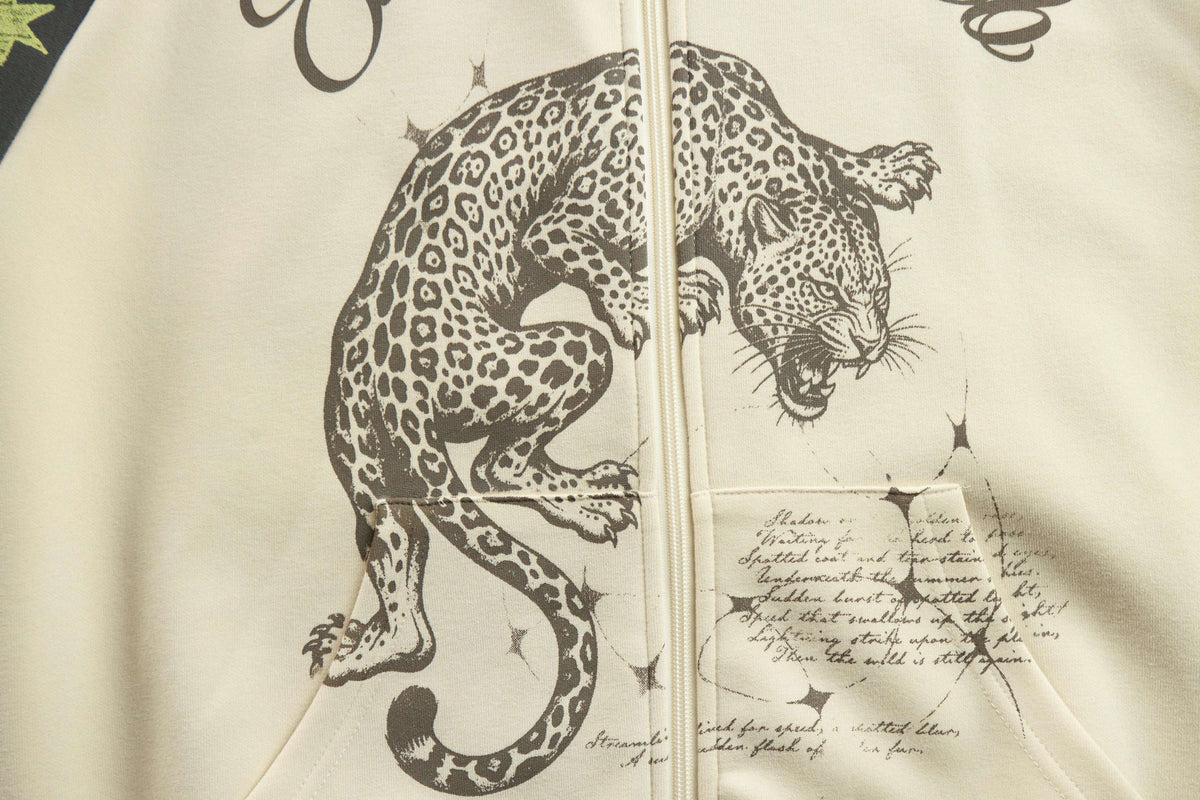 Shadow
Waiting for herd to pass
Spotted coat and tear-stain d eyes,
Underneath the ummer kies.
Sudden burst of spotted li ht,
Speed that swallows up the s ght!
Lightning strike upon the pla ins,
Then the wild is still again.
Streamli for speed, a blur,
A flash of fur,